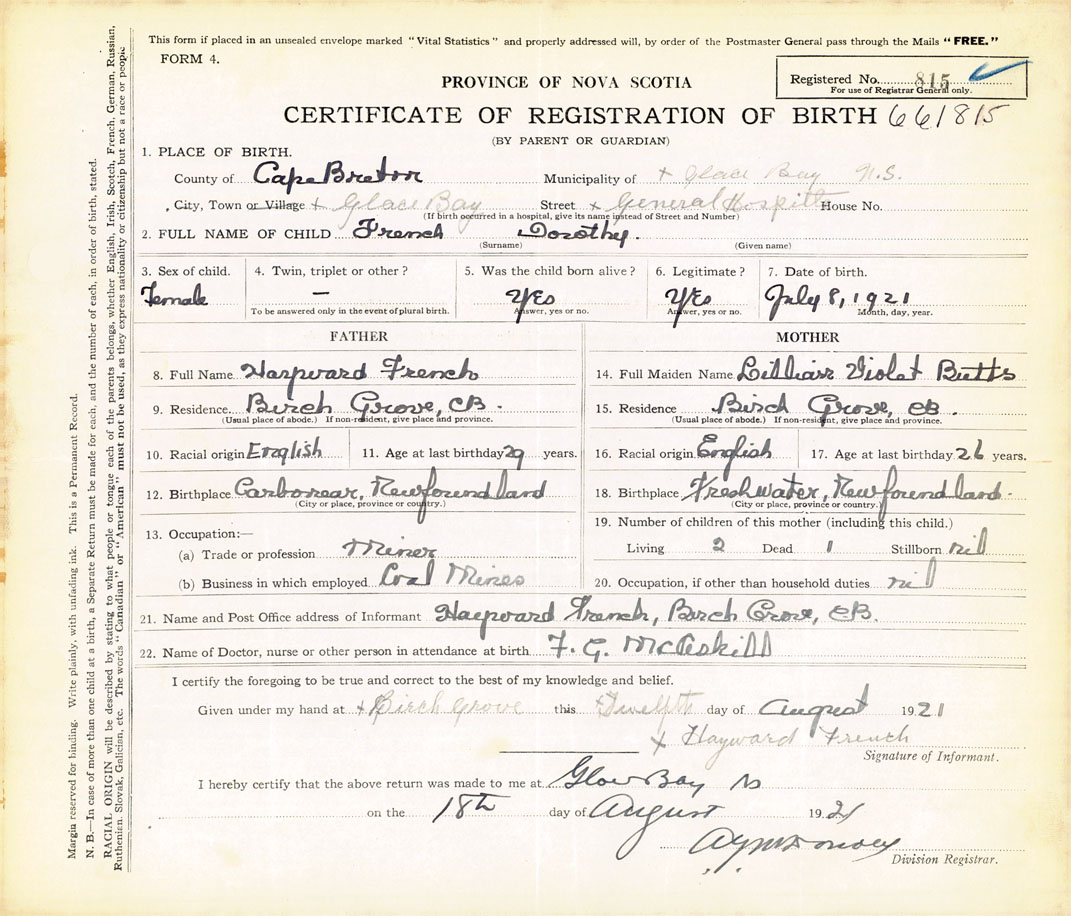 This form if placed in an unsealed envelope marked "Vital Statistics" and properly addressed will, by order of the Postmaster General pass through the Mails "FREE."
FORM 4.
PROVINCE OF NOVA SCOTIA
Registered No. 815
For use of Registrar General only.
CERTIFICATE OF REGISTRATION OF BIRTH 661815
(BY PARENT OR GUARDIAN)
1. PLACE OF BIRTH.
County of Cape Breton Municipality of x Glace Bay N.S.
City, Town or Village x Glace Bay Street x General Hospital House No.
(If birth occurred in a hospital, give its name instead of Street and Number)
2. FULL NAME OF CHILD French Dorothy.
(Surname) (Given name)
3. Sex of child. 4. Twin, triplet or other? 5. Was the child born alive? 6. Legitimate? 7. Date of birth.
Female — Yes Yes July 8, 1921
To be answered only in the event of plural birth. Answer, yes or no. Answer, yes or no. Month, day, year.
FATHER MOTHER
8. Full Name Hayward French 14. Full Maiden Name Lillian Violet Butts
9. Residence Birch Grove, CB. 15. Residence Birch Grove, CB.
(Usual place of abode.) If non-resident, give place and province. (Usual place of abode.) If non-resident, give place and province.
10. Racial origin English 11. Age at last birthday 29 years. 16. Racial origin English 17. Age at last birthday 26 years.
12. Birthplace Carbonear, Newfoundland 18. Birthplace Freshwater, Newfoundland.
(City or place, province or country.) (City or place, province or country.)
13. Occupation:— 19. Number of children of this mother (including this child.)
(a) Trade or profession Miner Living 2 Dead 1 Stillborn nil
(b) Business in which employed Coal Mines 20. Occupation, if other than household duties nil
21. Name and Post Office address of Informant Hayward French, Birch Grove, CB.
22. Name of Doctor, nurse or other person in attendance at birth F. G. McAskill
I certify the foregoing to be true and correct to the best of my knowledge and belief.
Given under my hand at x Birch Grove this Twelfth day of August 1921
x Hayward French
Signature of Informant.
I hereby certify that the above return was made to me at Glace Bay NS
on the 18th day of August 1921
Division Registrar.
Margin reserved for binding. Write plainly, with unfading ink. This is a Permanent Record.
N. B.—In case of more than one child at a birth, a Separate Return must be made for each, and the number of each, in order of birth, stated.
RACIAL ORIGIN will be described by stating to what people or tongue each of the parents belongs, whether English, Irish, Scotch, French, German, Russian,
Ruthenian, Slovak, Galician, etc. The words "Canadian" or "American" must not be used, as they express nationality or citizenship but not a race or people